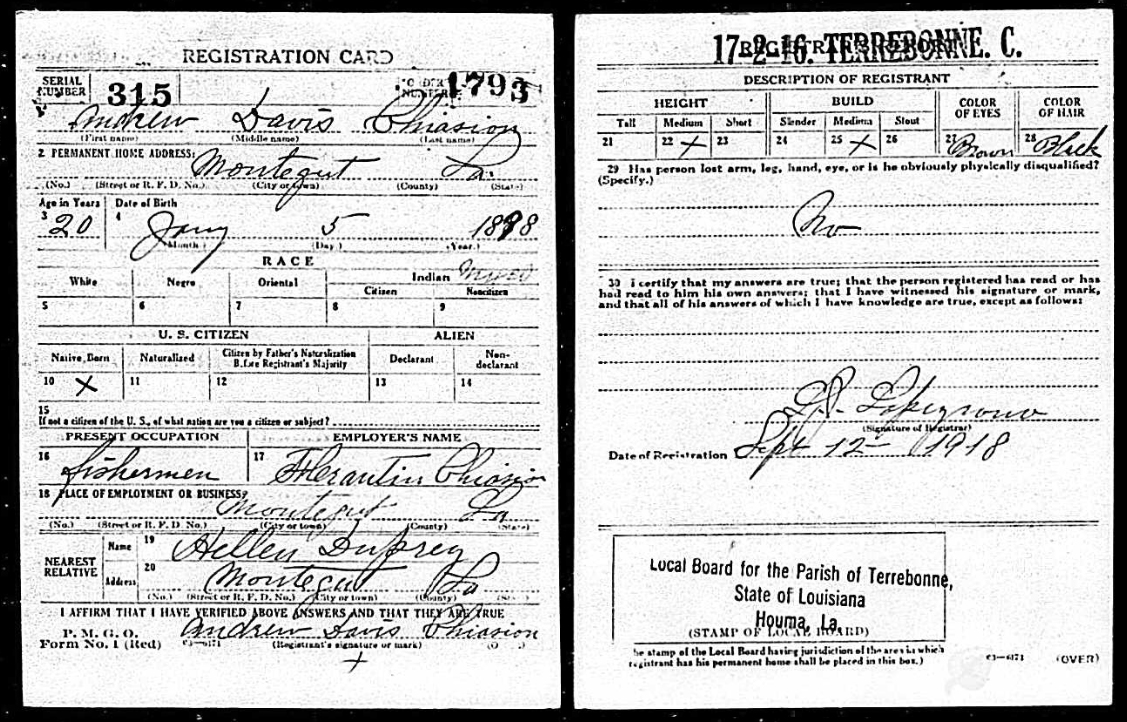 REGISTRATION CARD
SERIAL NUMBER 315 ORDER NUMBER 1793
Andrew Davis Chiasion
(First name) (Middle name) (Last name)
2 PERMANENT HOME ADDRESS:
Montegut La
(No.) (Street or R. F. D. No.) (City or town) (County) (State)
Age in Years Date of Birth
3 20 4 Jany 5 1898
(Month) (Day) (Year)
RACE
White Negro Oriental Indian Mixed
Citizen Noncitizen
5 6 7 8 9
U. S. CITIZEN ALIEN
Native Born Naturalized Citizen by Father's Naturalization Before Registrant's Majority Declarant Non-declarant
10 X 11 12 13 14
15
If not a citizen of the U. S., of what nation are you a citizen or subject?
PRESENT OCCUPATION EMPLOYER'S NAME
16 fishermen 17 Chiasion
18 PLACE OF EMPLOYMENT OR BUSINESS:
Montegut La
(No.) (Street or R. F. D. No.) (City or town) (County) (State)
NEAREST RELATIVE Name 19 Hellen Duprey
Address 20 Montegut La
(No.) (Street or R. F. D. No.) (City or town) (County) (State)
I AFFIRM THAT I HAVE VERIFIED ABOVE ANSWERS AND THAT THEY ARE TRUE
P. M. G. O.
Form No. 1 (Red) 03—6171 Andrew Davis Chiasion
(Registrant's signature or mark) (OVER)
X
REGISTRAR'S REPORT
17-2-16. TERREBONNE. C.
DESCRIPTION OF REGISTRANT
HEIGHT BUILD COLOR OF EYES COLOR OF HAIR
Tall Medium Short Slender Medium Stout
21 22 X 23 24 25 X 26 27 Brown 28 Black
29 Has person lost arm, leg, hand, eye, or is he obviously physically disqualified?
(Specify.)
No
30 I certify that my answers are true; that the person registered has read or has
had read to him his own answers; that I have witnessed his signature or mark,
and that all of his answers of which I have knowledge are true, except as follows:
(Signature of Registrar)
Date of Registration Sept 12 1918
Local Board for the Parish of Terrebonne,
State of Louisiana
Houma, La.
(STAMP OF LOCAL BOARD)
The stamp of the Local Board having jurisdiction of the area in which
registrant has his permanent home shall be placed in this box.)
03—6171 (OVER)